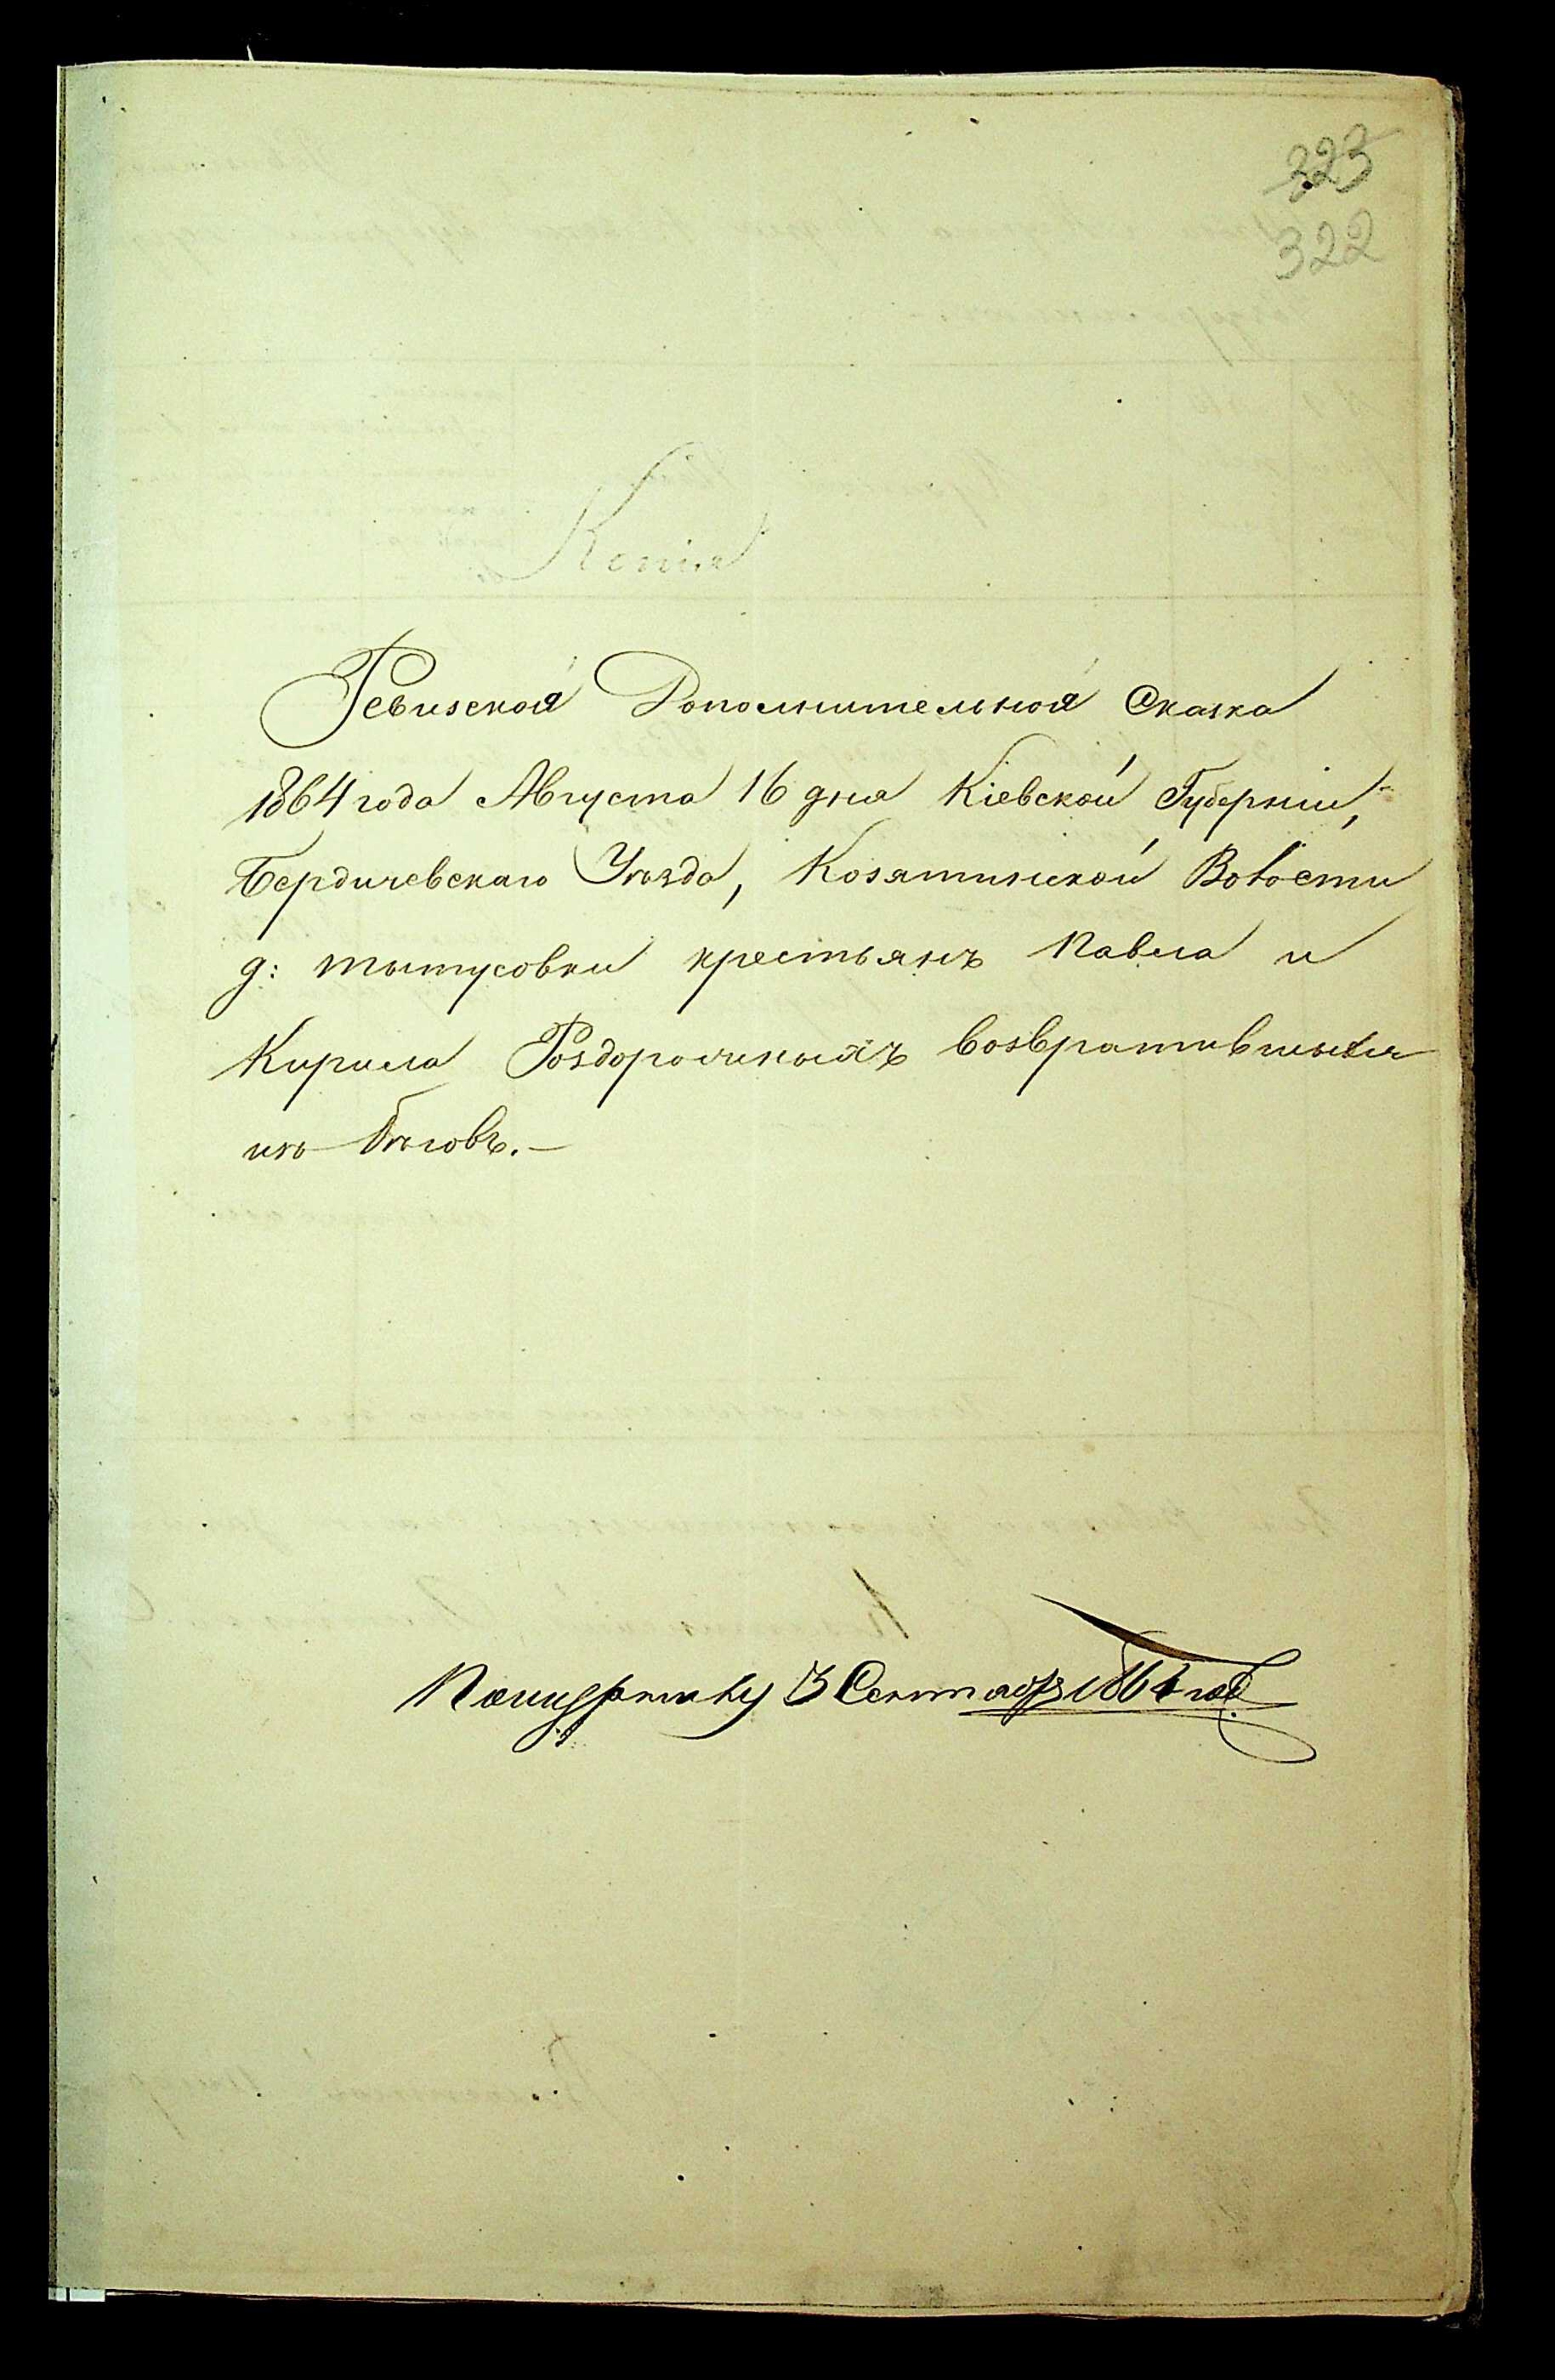 323
322
Копія
Ревизская Дополнительная Сказка
1864 года Августа 16 дня Кіевской Губерніи,
Бердичевскаго Уѣзда, Козятинской Волости
д: Тытусовки крестьянъ Павла и
Кирила Роздорожныхъ возвратившихся
изъ бѣговъ. —
3 Сентября 1864 год.